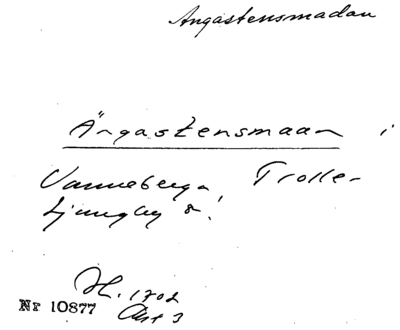 Ängastensmadan
Ängastensmaan i
Vanneberga, Trolle-
Ljungby s.
H. 1702
Akt 3
Nr 10877